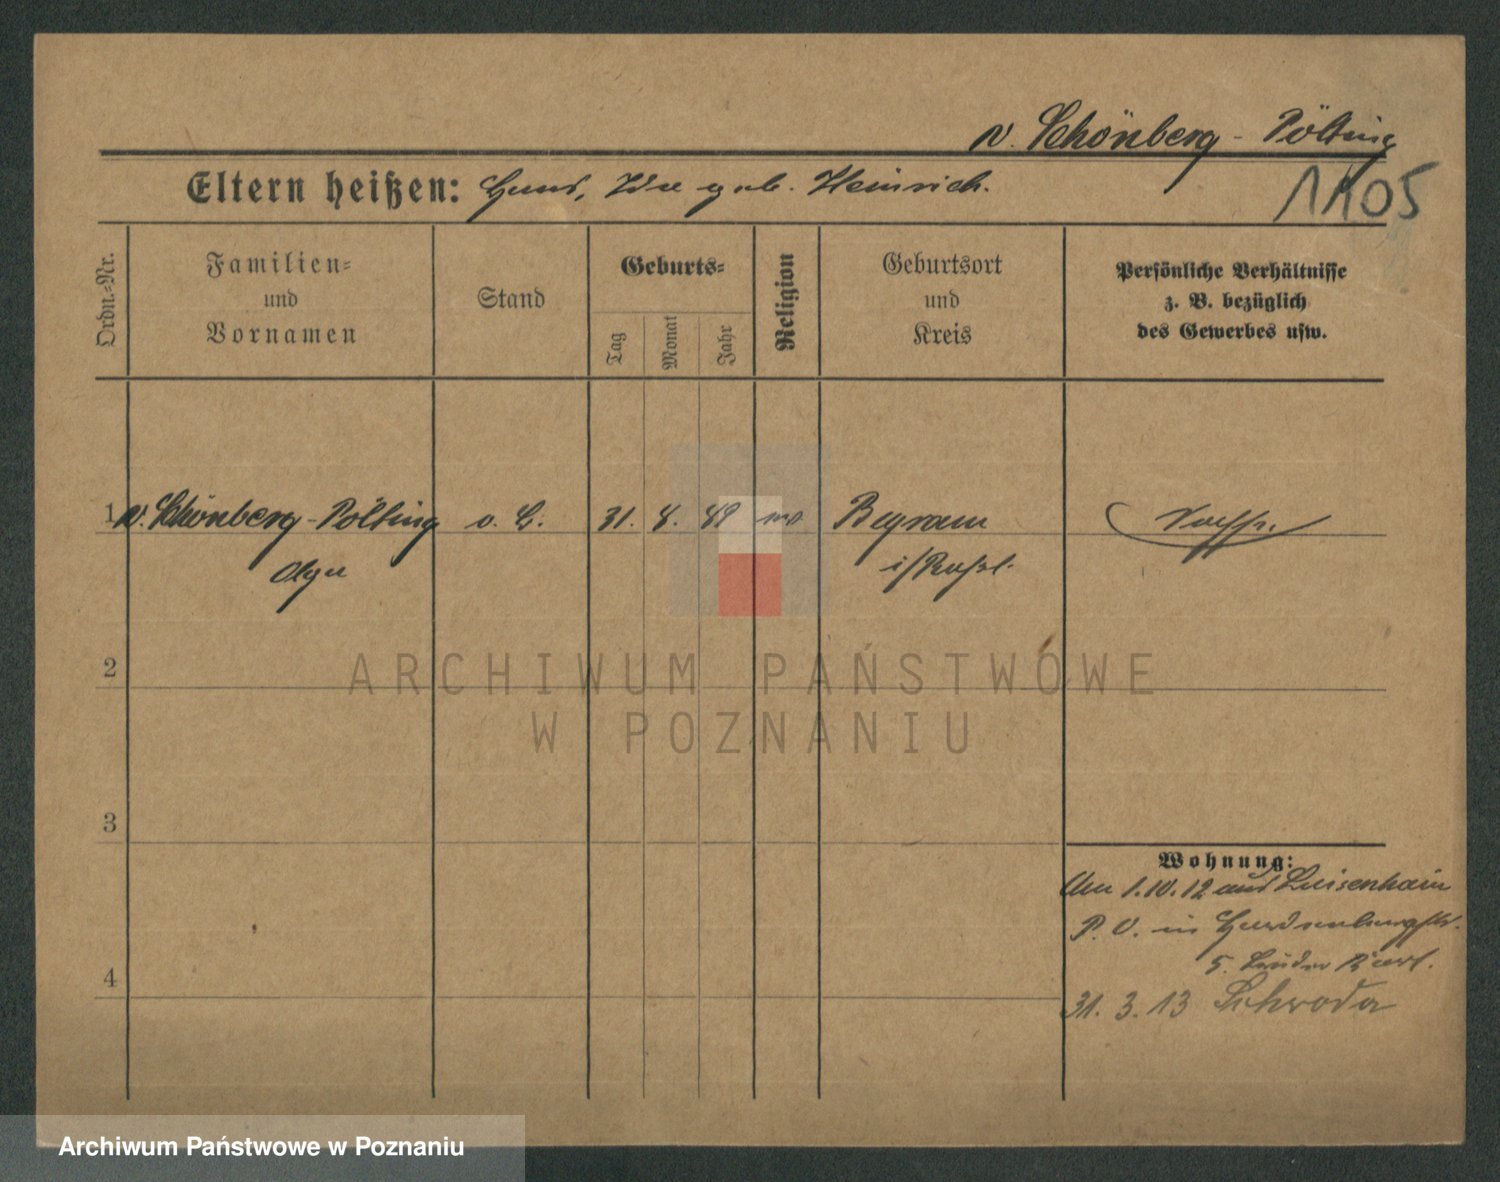 v. Schönberg - Pölting
Eltern heißen: Hans, Ida geb. Heinrich.
1105
Ordn.=Nr.
Familien=
und
Vornamen
Stand
Geburts=
Tag
Monat
Jahr
Religion
Geburtsort
und
Kreis
Persönliche Verhältnisse
z. B. bezüglich
des Gewerbes usw.
1 v. Schönberg - Pölting o. G. 31. 8. 89
Olga
2
ARCHIWUM PAŃSTWOWE
W POZNANIU
3
Wohnung:
Am 1.10.12 aus Luisenhain
P. O. in
5.
4
31. 3. 13 Schroda
Archiwum Państwowe w Poznaniu